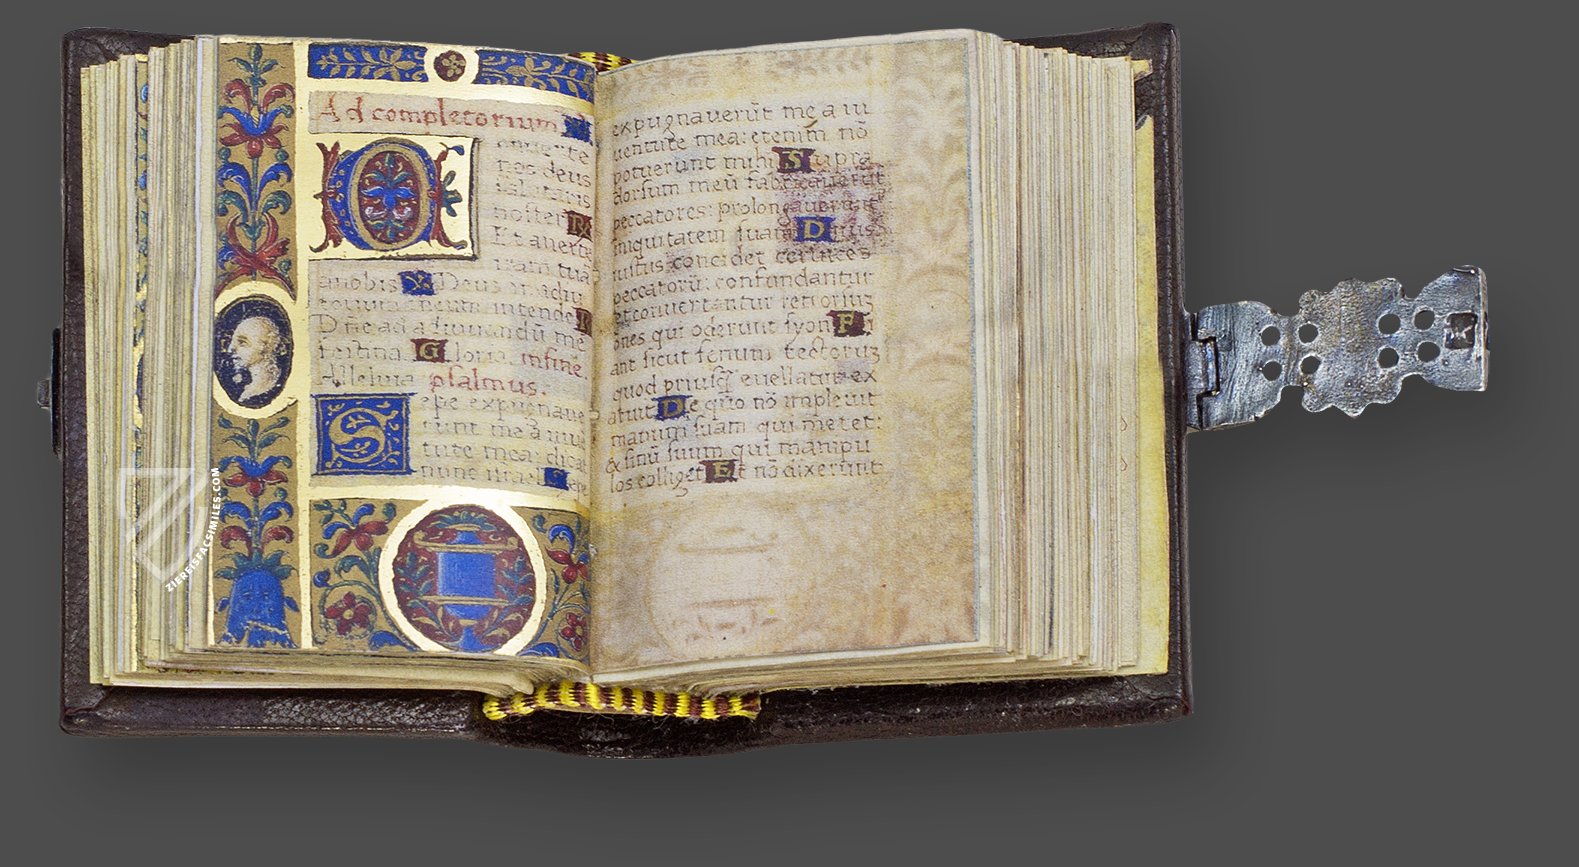 Ad completorium
Conuerte
nos deus
salutaris
noster R
Et auerte
iram tuā
anobis V Deus in adiu
D ne ad adiuuandū me
festina. Gloria. infine.
Alleluia psalmus.
Sepe expugnaue
runt me a iuu
tute mea: dicat
nunc israel Sepe
expugnauerūt me a iu
uentute mea: etenim nō
potuerunt mihi Supra
dorsum meū fabricauerūt
peccatores: prolongauerunt
iniquitatem suam Dn̄us
iustus concidet ceruices
peccatorū: confundantur
et conuertantur retrorsuꝫ
oēs qui oderunt syon F
ant sicut fenum tectoruꝫ
quod priusq̄ euellatur ex
aruit De quo nō impleuit
manum suam qui metet:
& sinū suum qui manipu
los colliget Et nō dixerunt
ZIEREISFACSIMILES.COM